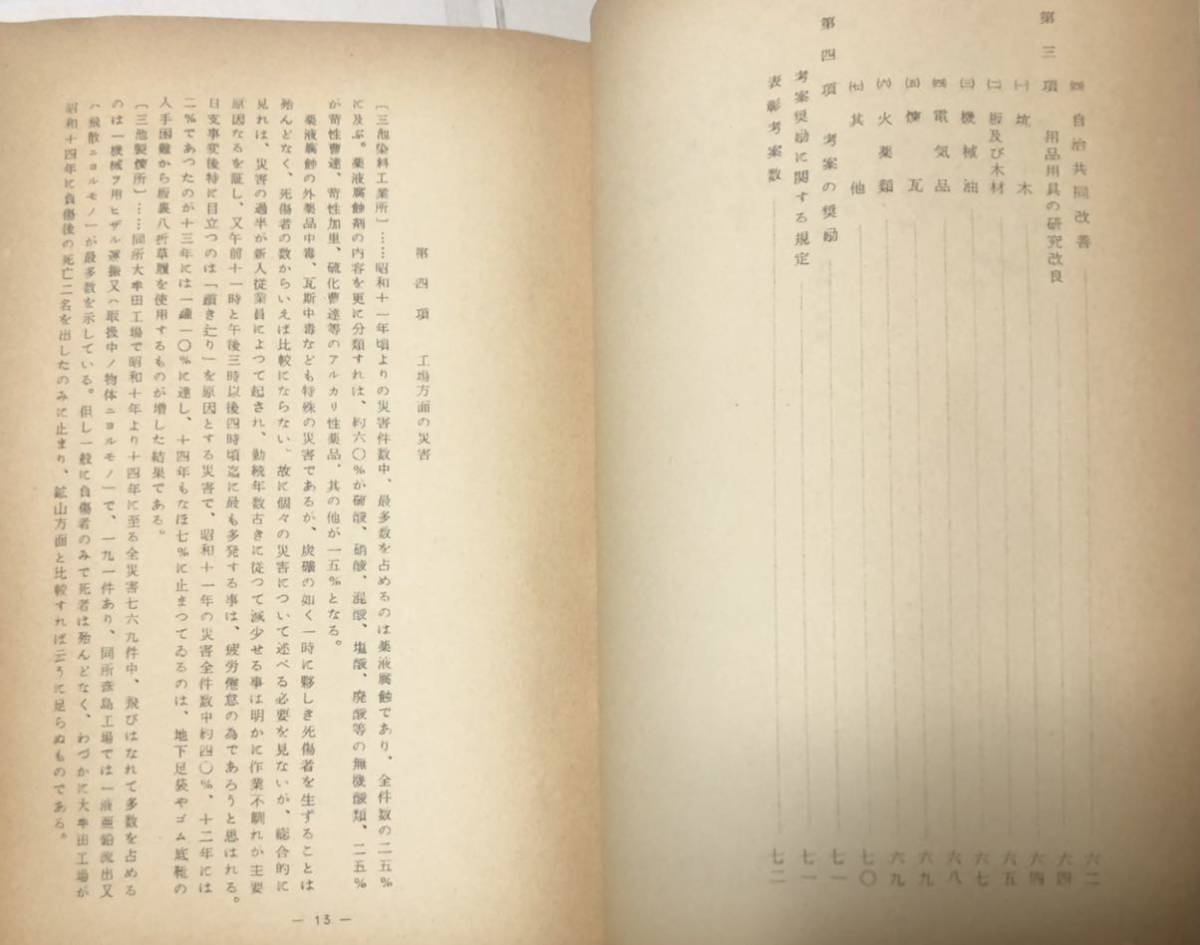 ㈣ 自治共同改善 六二
第三項 用品用具の研究改良 六四
㈠ 坑木 六四
㈡ 板及び木材 六五
㈢ 機械油 六七
㈣ 電気品 六八
㈤ 煉瓦 六九
㈥ 火薬類 六九
㈦ 其他 七〇
第四項 考案の奨励 七一
考案奨励に関する規定 七一
表彰考案数 七二
第四項 工場方面の災害
〔三池染料工業所〕……昭和十一年頃よりの災害件数中、最多数を占めるのは薬液腐蝕であり、全件数の二五%
に及ぶ。薬液腐蝕剤の内容を更に分類すれば、約六〇%が硫酸、硝酸、混酸、塩酸、廃酸等の無機酸類、二五%
が苛性曹達、苛性加里、硫化曹達等のアルカリ性薬品、其の他が一五%となる。
薬液腐蝕の外薬品中毒、瓦斯中毒なども特殊の災害であるが、炭礦の如く一時に夥しき死傷者を生ずることは
殆んどなく、死傷者の数からいえば比較にならない。故に個々の災害について述べる必要を見ないが、総合的に
見れは、災害の過半が新人従業員によつて起され、勤続年数古きに従つて減少せる事は明かに作業不馴れが主要
原因なるを証し、又午前十一時と午後三時以後四時頃迄に最も多発する事は、疲労倦怠の為であろうと思はれる。
日支事変後特に目立つのは「躓き辷り」を原因とする災害で、昭和十一年の災害全件数中約四〇%、十二年には
二%であつたのが十三年には一躍一〇%に達し、十四年もなほ七%に止まつてゐるのは、地下足袋やゴム底靴の
人手困難から板裏八折草履を使用するものが増した結果である。
〔三池製煉所〕……同所大牟田工場で昭和十年より十四年に至る全災害七六九件中、飛びはなれて多数を占める
のは「機械ヲ用ヒザル運搬又ハ取扱中ノ物体ニヨルモノ」で、一九一件あり、同所彦島工場では「液亜鉛流出又
ハ飛散ニヨルモノ」が最多数を示している。但し一般に負傷者のみで死者は殆んどなく、わづかに大牟田工場が
昭和十四年に負傷後の死亡二名を出したのみに止まり、鉱山方面と比較すれば云うに足らぬものである。
— 13 —